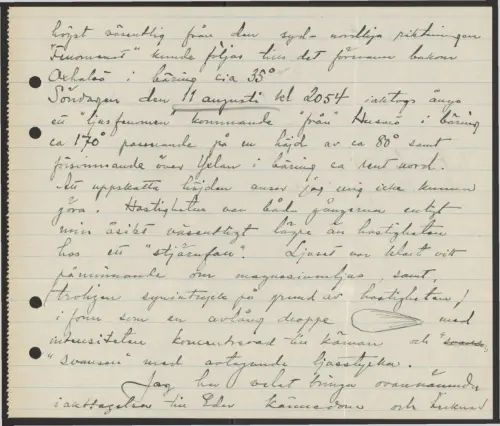 högst väsentlig från den syd-nordliga riktningen
"Fenomenet" kunde följas tills det försvann bakom
Oxhalsö i bäring cia 35°
Söndagen den 11 augusti kl 2054 iakttogs ännu
ett "ljusfenomen" kommande "från" Husarö i bäring
ca 170° passerande på en höjd av ca 80° samt
försvinnande över Yxlan i bäring ca rent nord.
Att uppskatta höjden anser jag mig icke kunna
göra. Hastigheten var båda gångerna enligt
min åsikt väsentligt lägre än hastigheten
hos ett "stjärnfall". Ljuset var klart vitt
påminnande om magnesiumljus, samt,
troligen synintryck på grund av hastigheten,
i form som en avlång droppe med
intensiteten koncentrerad till kärnan och
"svansen" med avtagande ljusstyrka.
Jag har velat bringa ovannämnda
iakttagelser till Eder kännedom och